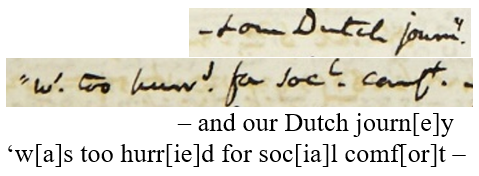 – & our Dutch journʸ.
"wˢ. too hurrᵈ. for socˡ. comfᵗ. –
– and our Dutch journ[e]y
‘w[a]s too hurr[ie]d for soc[ia]l comf[or]t –